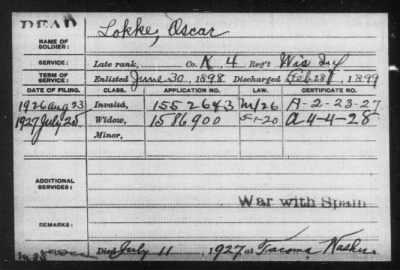 DEAD
NAME OF SOLDIER: Lokke, Oscar
SERVICE: Late rank, Co. K, 4 Reg't Wis Inf
TERM OF SERVICE: Enlisted June 30, 1898 Discharged Feb 28, 1899
DATE OF FILING. CLASS. APPLICATION NO. LAW. CERTIFICATE NO.
1926 Aug 23 Invalid, 1552643 M/26 A-2-23-27
1927 July 25 Widow, 1586900 5-1-20 A-4-4-28
Minor,
ADDITIONAL SERVICES:
War with Spain
REMARKS:
Died July 11, 1927 at Tacoma Washn